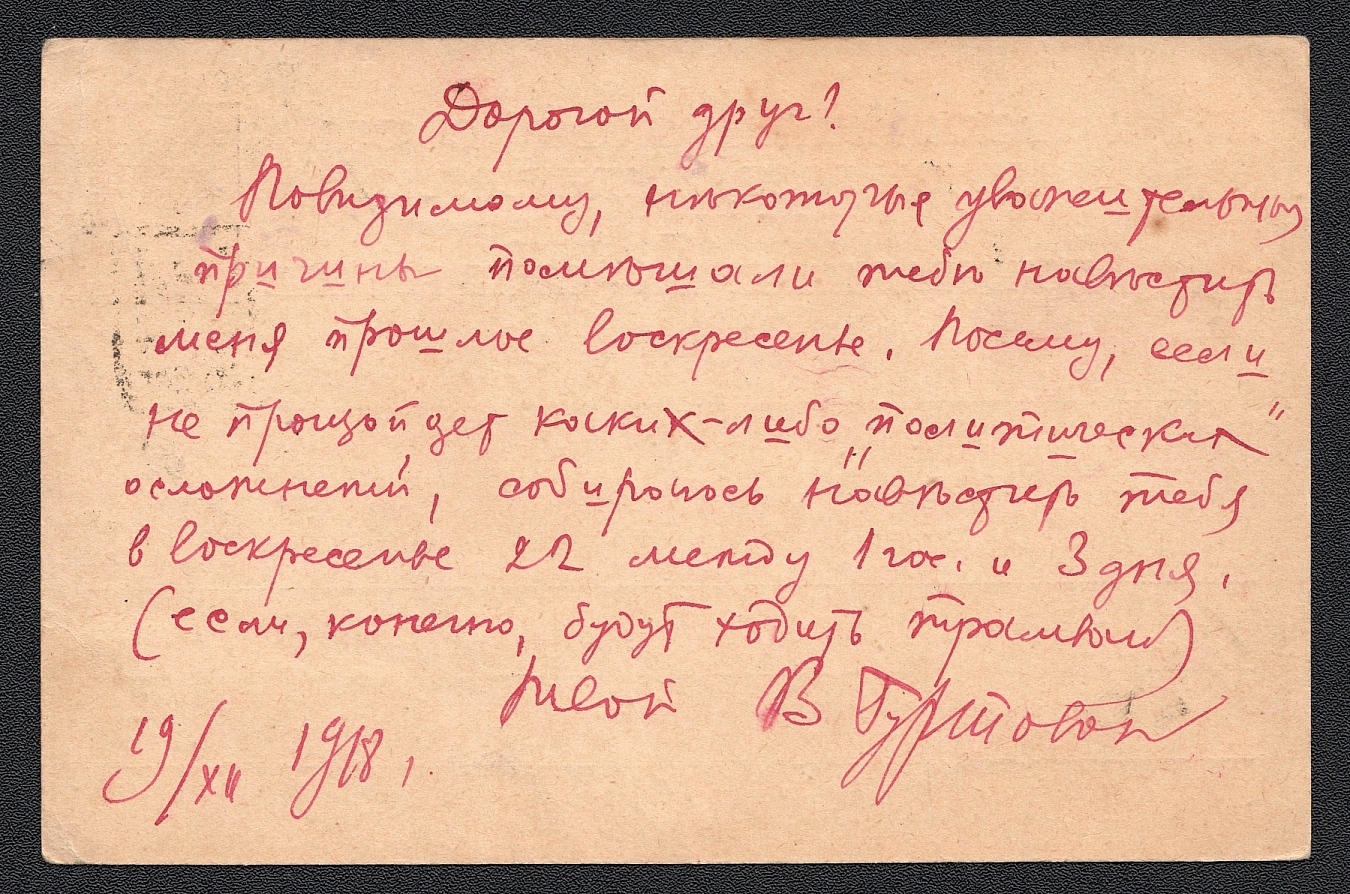 Дорогой друг!
Повидимому, нѣкоторые уважительныя
причины помѣшали тебѣ навѣстить
меня прошлое воскресенье. Посему, если
не произойдет каких-либо „политическая"
осложнений, собираюсь навѣстить тебя
в воскресенье 22 между 1 час. и 3 дня.
(если, конечно, будут ходить трамваи)
Твой В
19/XII 1918 г.